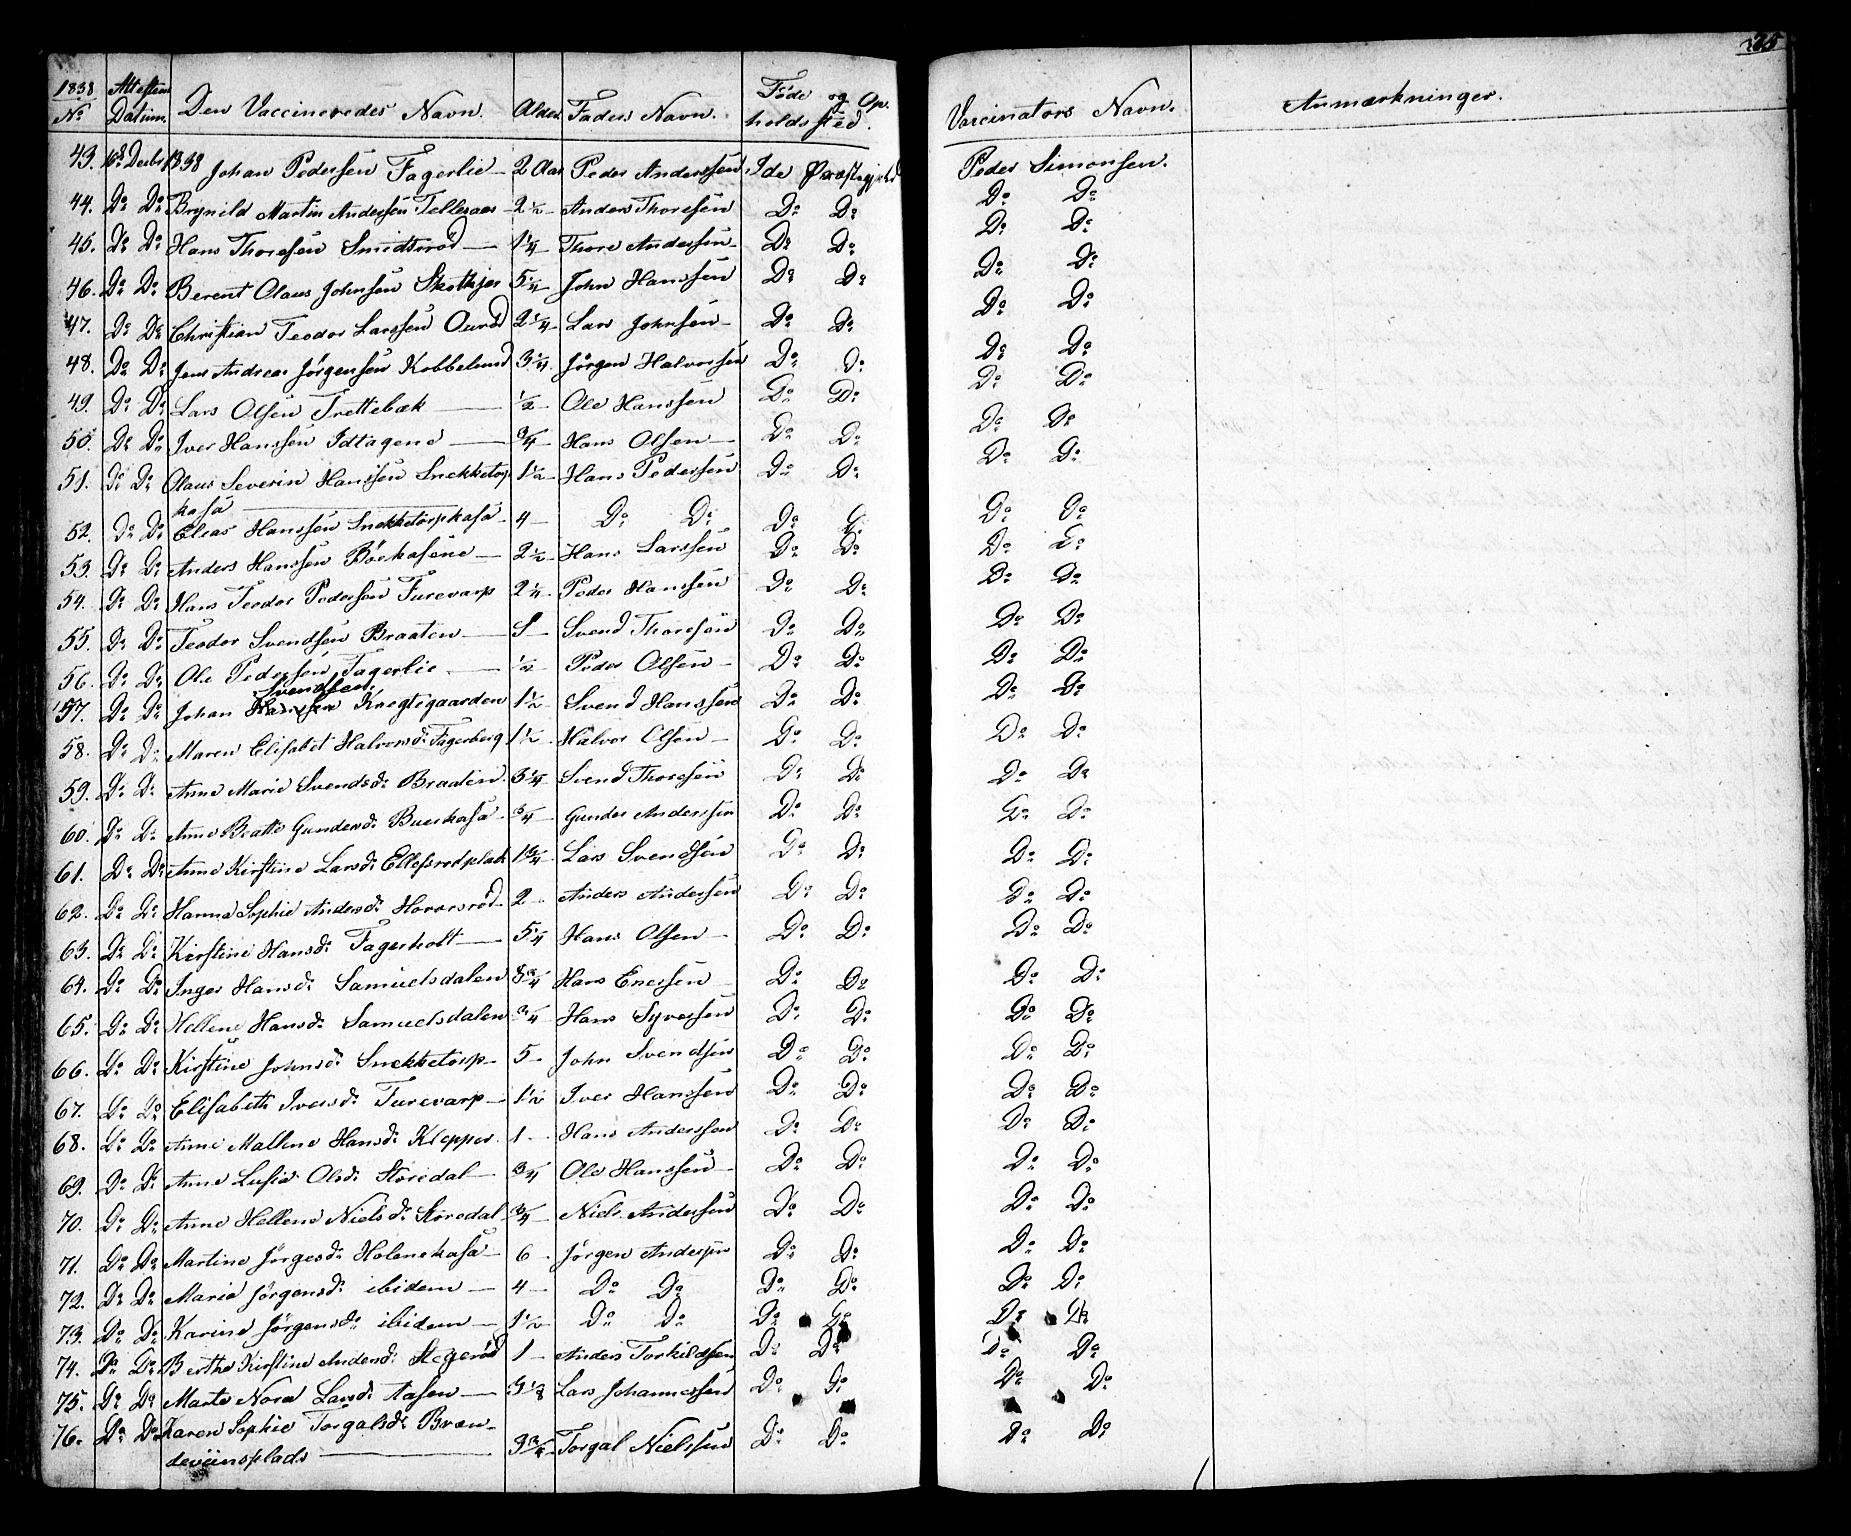 225
1838 Attestens Den Vaccineredes Navn. Alder. Faders Navn. Føde og Op- Vaccinators Navn. Anmærkninger.
No Datum. holds sted.
43. 1838 Johan Pedersen Fagerlie — 2 Aar Peder Anderssen Ide Præstegjeld Peder Simonsen.
44. Do Do Brynild Martin Andersen Tellesaas — 2 1/2 — Anders Thoresen Do Do Do Do
45. Do Do Hans Thoresen Smidtsrød — 1 1/4 — Thore Andersen — Do Do Do Do
46. Do Do Berent Olaus Johnsen Skotkjær 5 1/4 — John Hanssen Do Do Do Do
47. Do Do Christian Teodor Larssen 2 1/4 — Lars Johnsen — Do Do Do Do
48. Do Do Jens Andreas Jørgensen Kobbelund 3 1/4 Jørgen Halvorsen Do Do Do Do
49. Do Do Lars Olsen Trettebæk — 1/2 — Ole Hanssen Do Do Do Do
50. Do Do Iver Hanssen Idtagene — 3/4 — Hans Olsen — Do Do Do Do
51. Do Do Olaus Severin Hanssen Snekketorp- 1 1/2 — Hans Pedersen Do Do Do Do
kasa —
52. Do Do Elias Hanssen Snekketorpkasa — 4 — Do Do Do Do Do Do
53. Do Do Anders Hanssen Børkasene — 2 1/2 — Hans Larssen Do Do Do Do
54. Do Do Hans Teodor Pedersen Furevarp 2 1/4 — Peder Hanssen Do Do Do Do
55. Do Do Teodor Svendsen Braaten — Svend Thoresen Do Do Do Do
56. Do Do Ole Pedersen Fagerlie — 1/2 — Peder Olsen — Do Do Do Do
Svendsen
57. Do Do Johan Hanssen Knegtegaarden 1 1/2 — Svend Hanssen Do Do Do Do
58. Do Do Maren Elisabet Halvorsd: Fagerberg 1 1/2 — Halvor Olsen — Do Do Do Do
59. Do Do Anne Marie Svendsd: Braaten 3 1/4 — Svend Thoresen Do Do Do Do
60. Do Do Anne Beatte Gundersd: Bueskasa — 3/4 — Gunder Anderssen Do Do Do Do
61. Do Do Anne Kirstine Larsd: Ellefsrødplads 1 3/4 — Lars Svendsen Do Do Do Do
62. Do Do Hanna Sophie Andersd: Hovorsrød — 2 — Anders Andersen Do Do Do Do
63. Do Do Kirstine Hansd: Fagerholt — 5 1/4 Hans Olsen — Do Do Do Do
64. Do Do Inger Hansd: Samuelsdalen 8 3/4 Hans Ericssen — Do Do Do Do
65. Do Do Hellene Hansd: Samuelsdalen 3/4 — Hans Syversen Do Do Do Do
66. Do Do Kirstine Johnsd: Snekketorp — 5 — John Svendsen Do Do Do Do
67. Do Do Elisabeth Iversd: Furevarp — 1 1/2 Iver Hanssen Do Do Do Do
68. Do Do Anne Mallene Hansd: Klepper. 1 — Hans Anderssen Do Do Do Do
69. Do Do Anne Lusia Olsd: Storedal — 3/4 Ole Hanssen — Do Do Do Do
70. Do Do Anne Hellene Nielsd: Storedal 3/4 — Niels Andersen Do Do Do Do
71. Do Do Martine Jørgesd: Holenekasa — 6 — Jørgen Andersen Do Do Do Do
72. Do Do Marie Jørgensd: ibidem — 4 — Do Do Do Do Do Do
73. Do Do Karine Jørgensd: ibidem — 1 1/2 — Do Do Do Do Do Do
74. Do Do Berthe Kirstine Andersd: Stegerød 1 — Anders Torkildsen Do Do Do Do
75. Do Do Marte Nora Larsd: Aasen — 3 1/8 Lars Johannessen Do Do Do Do
76. Do Do Karen Sophie Torgalsd: Bræn- 3/4 — Torgal Nielssen Do Do Do Do
deviinsplads —